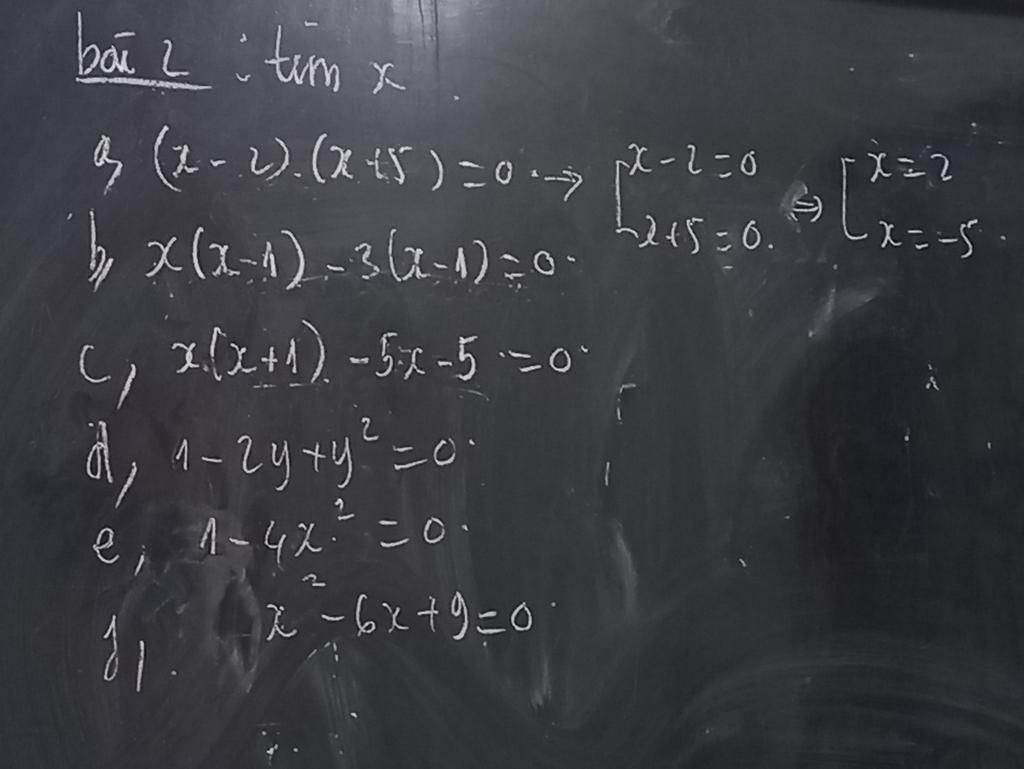 bài 2 : tìm x.
a, (x - 2).(x+5) = 0 → [x - 2 = 0 ⇔ [x = 2
x+5 = 0. x = -5.
b, x(x-1) - 3(x-1) = 0.
c, x(x+1) - 5x - 5 = 0.
d, 1 - 2y + y² = 0.
e, 1 - 4x² = 0.
f, x² - 6x + 9 = 0.